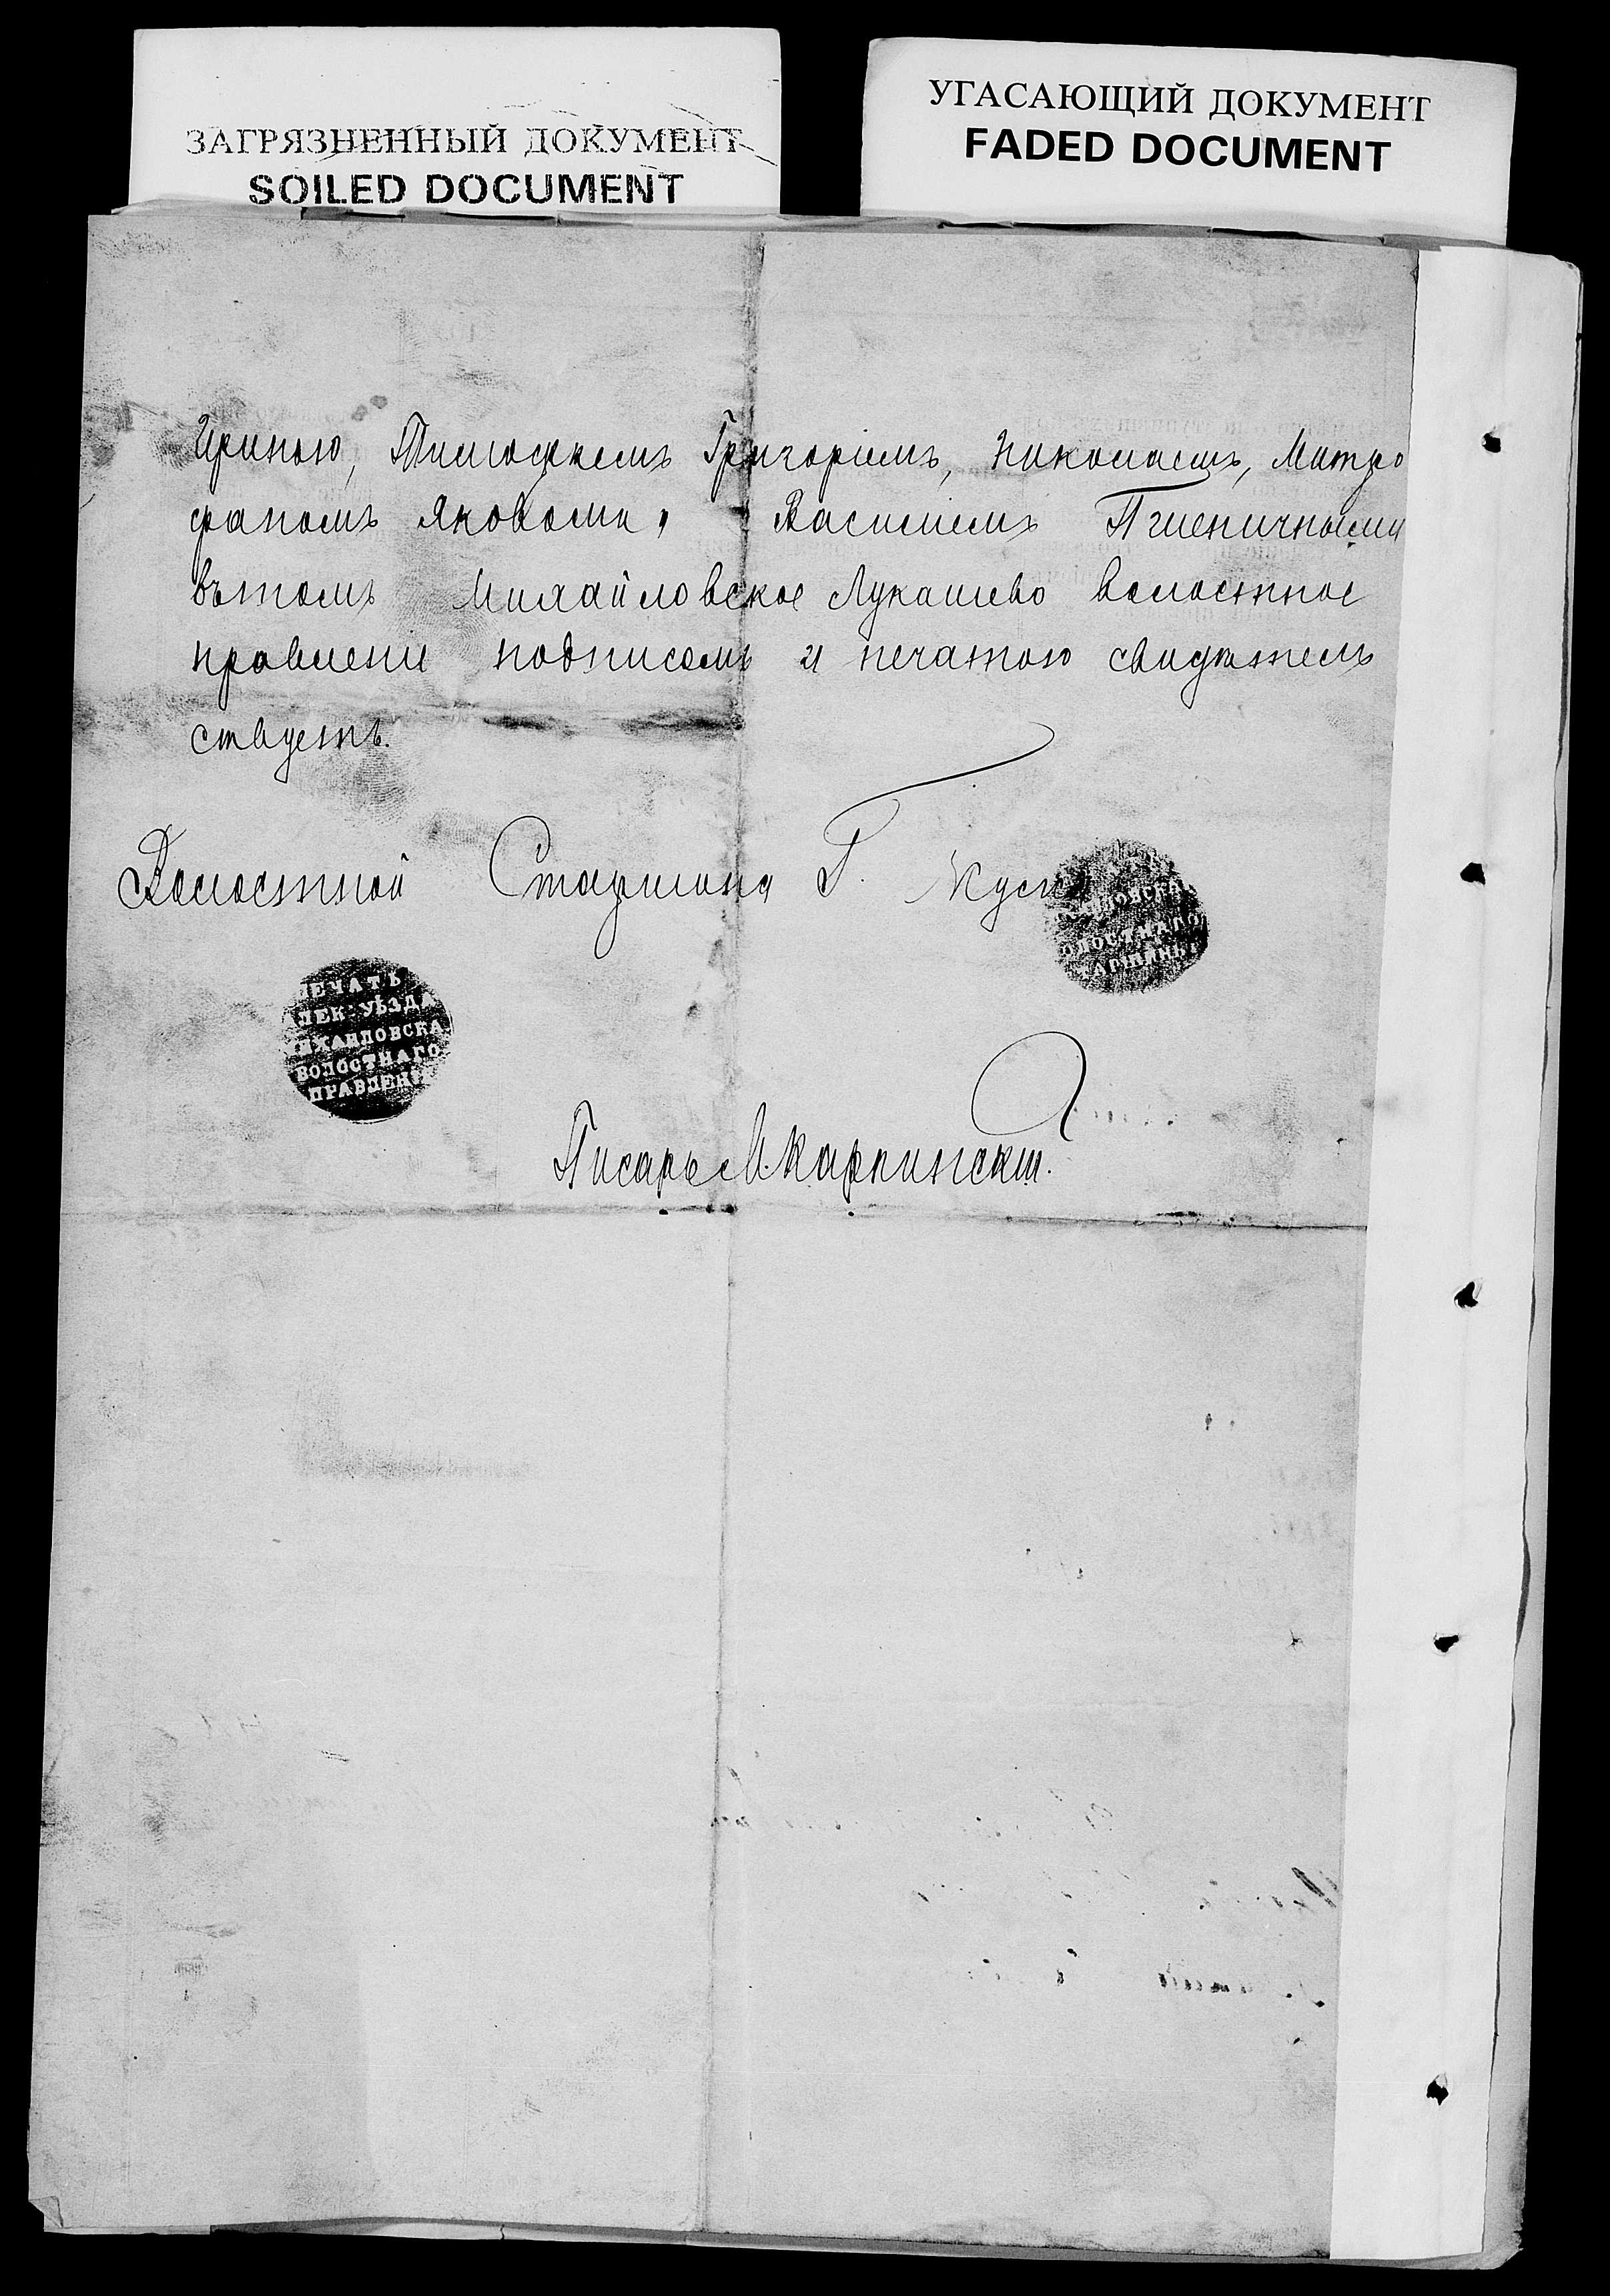 ЗАГРЯЗНЕННЫЙ ДОКУМЕНТ
SOILED DOCUMENT
УГАСАЮЩИЙ ДОКУМЕНТ
FADED DOCUMENT
Ириною, Тимофеемъ Григоріемъ, Николаемъ, Митро
фаномъ Яковомъ, Василіемъ Пшеничными
вътомъ Михайловское Лукашево волостное
правленіе подписомъ и печатою свидѣтель
ствуетъ.
Волостной Старшина Г.
ПЕЧАТЬ
АЛЕК: УѢЗДА
МИХАИЛОВСКА
ВОЛОСТНАГО
ПРАВЛЕНІ
Писарь М. Карпинскій.